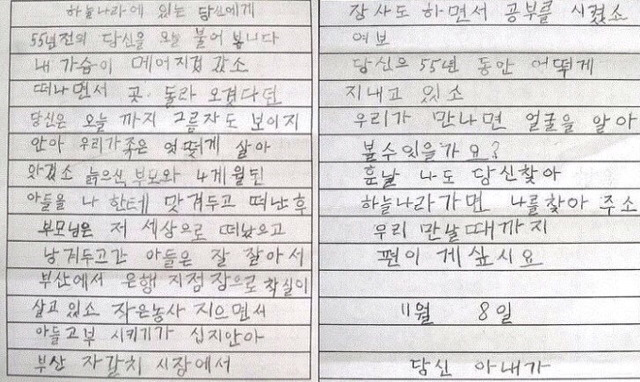 하늘나라에 있는 당신에게
55년전의 당신을 오늘 불어 봅니다
내 가슴이 메어지겁 갔소
떠나면서 곳·돌라 오겠다던
당신은 오늘 까지 그름자도 보이지
안아 우리가족은 엇떻게 살아
왔겠소 늙으신 부모와 4게월된
아들을 나 한테 맛겨두고 떠난후
부모님은 저 세상으로 떠났으고
남겨두고간 아들은 잘 잘아서
부산에서 은행 지점장으로 착실이
살고 있소 작은농사 지으면서
아들고부 시키기가 십지안아
부산 자갈치 시장에서
잠사도 하면서 공부를 시켰소
여보
당신으 55년 동안 어떻게
지내고 있소
우리가 만나면 얼굴을 알아
볼수있을가요?
훈날 나도 당신찾아
하늘나라가면 나를찾아 주소
우리 만날때까지
편이 게싶시요
11월 8일
당신 아내가